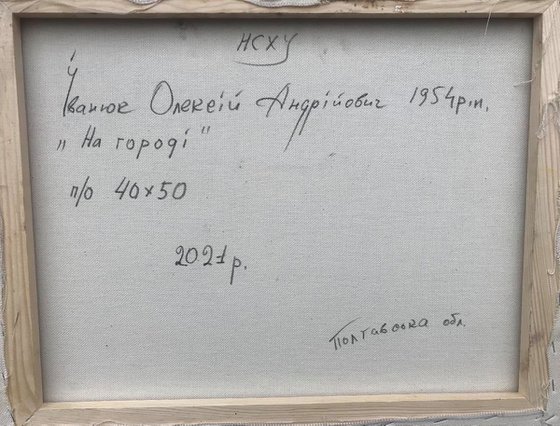 НСХУ
Іванюк Олексій Андрійович 1954р.н.
„ На городі "
п/о 40х50
2021р.
Полтавська обл.